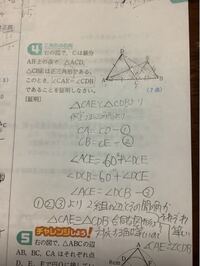 4
右の図で、Cは線分
AB上の点で、△ACD、
△CBEは正三角形である。
このとき、∠CAE=∠CDB
であることを証明しなさい。
〔証明〕
△CAEと△CDBより
CA=CD-①
CB=CE-②
∠ACE=60°+∠DCE
∠DCB=60°+∠DCE
∠ACE=∠DCB-③
①②③より2組の辺とその間の角が
それぞれ等しい
△CAE≡△CDB
合同な図形
対応
∠CAE=∠CDB
5
チャレンジしよう!
右の図で、△ABCの辺
AB、BC、CAはそれぞれ点
D
8cm